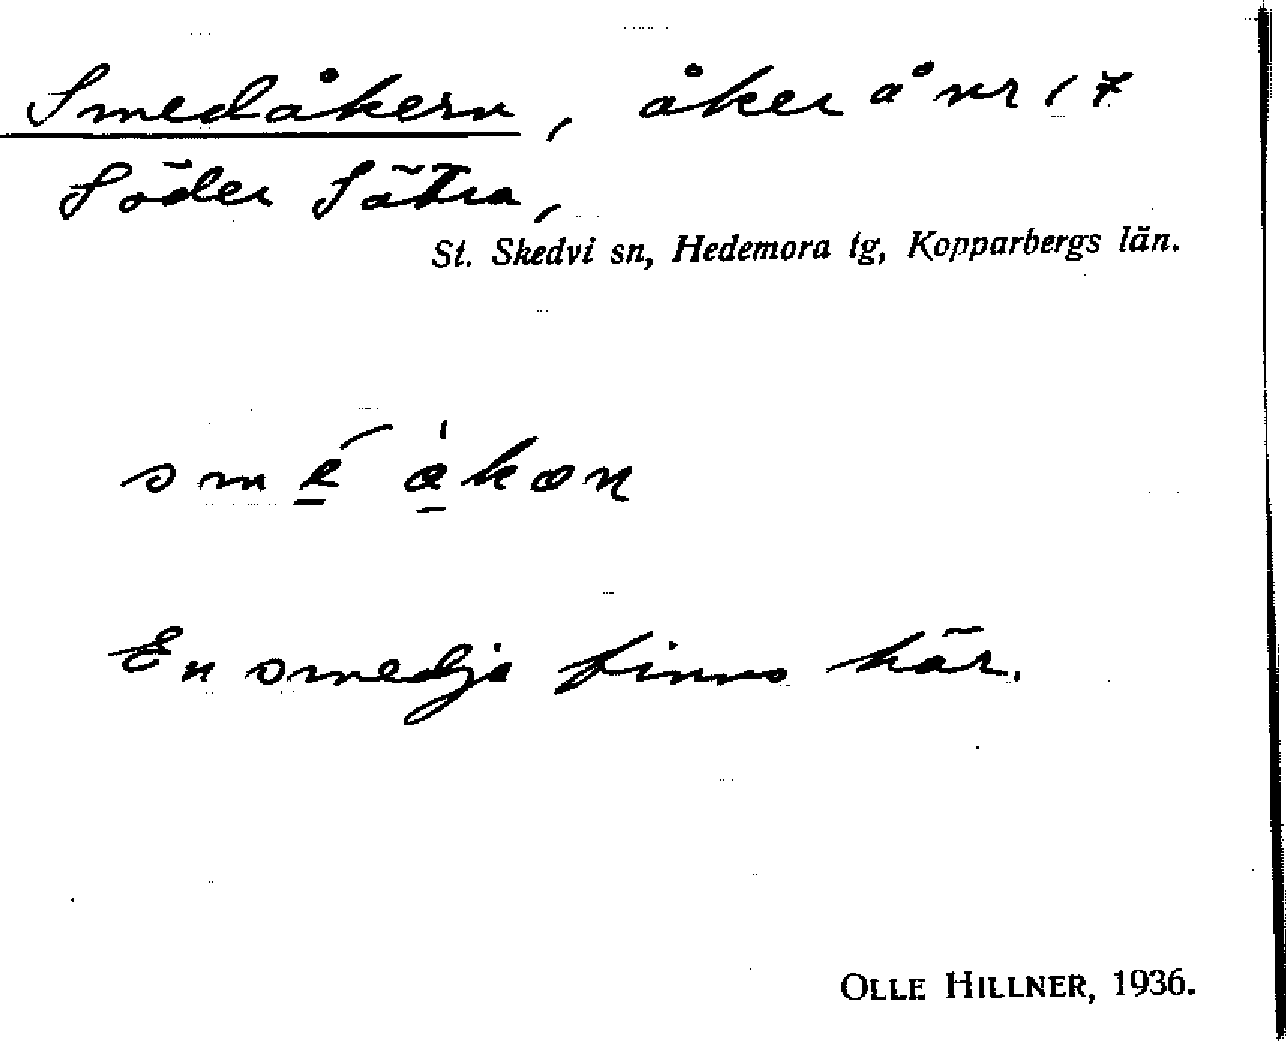 Smedåkern, åker å nr 17
Söder Sätra,
St. Skedvi sn, Hedemora tg, Kopparbergs län.
En smedja finns här.
OLLE HILLNER, 1936.